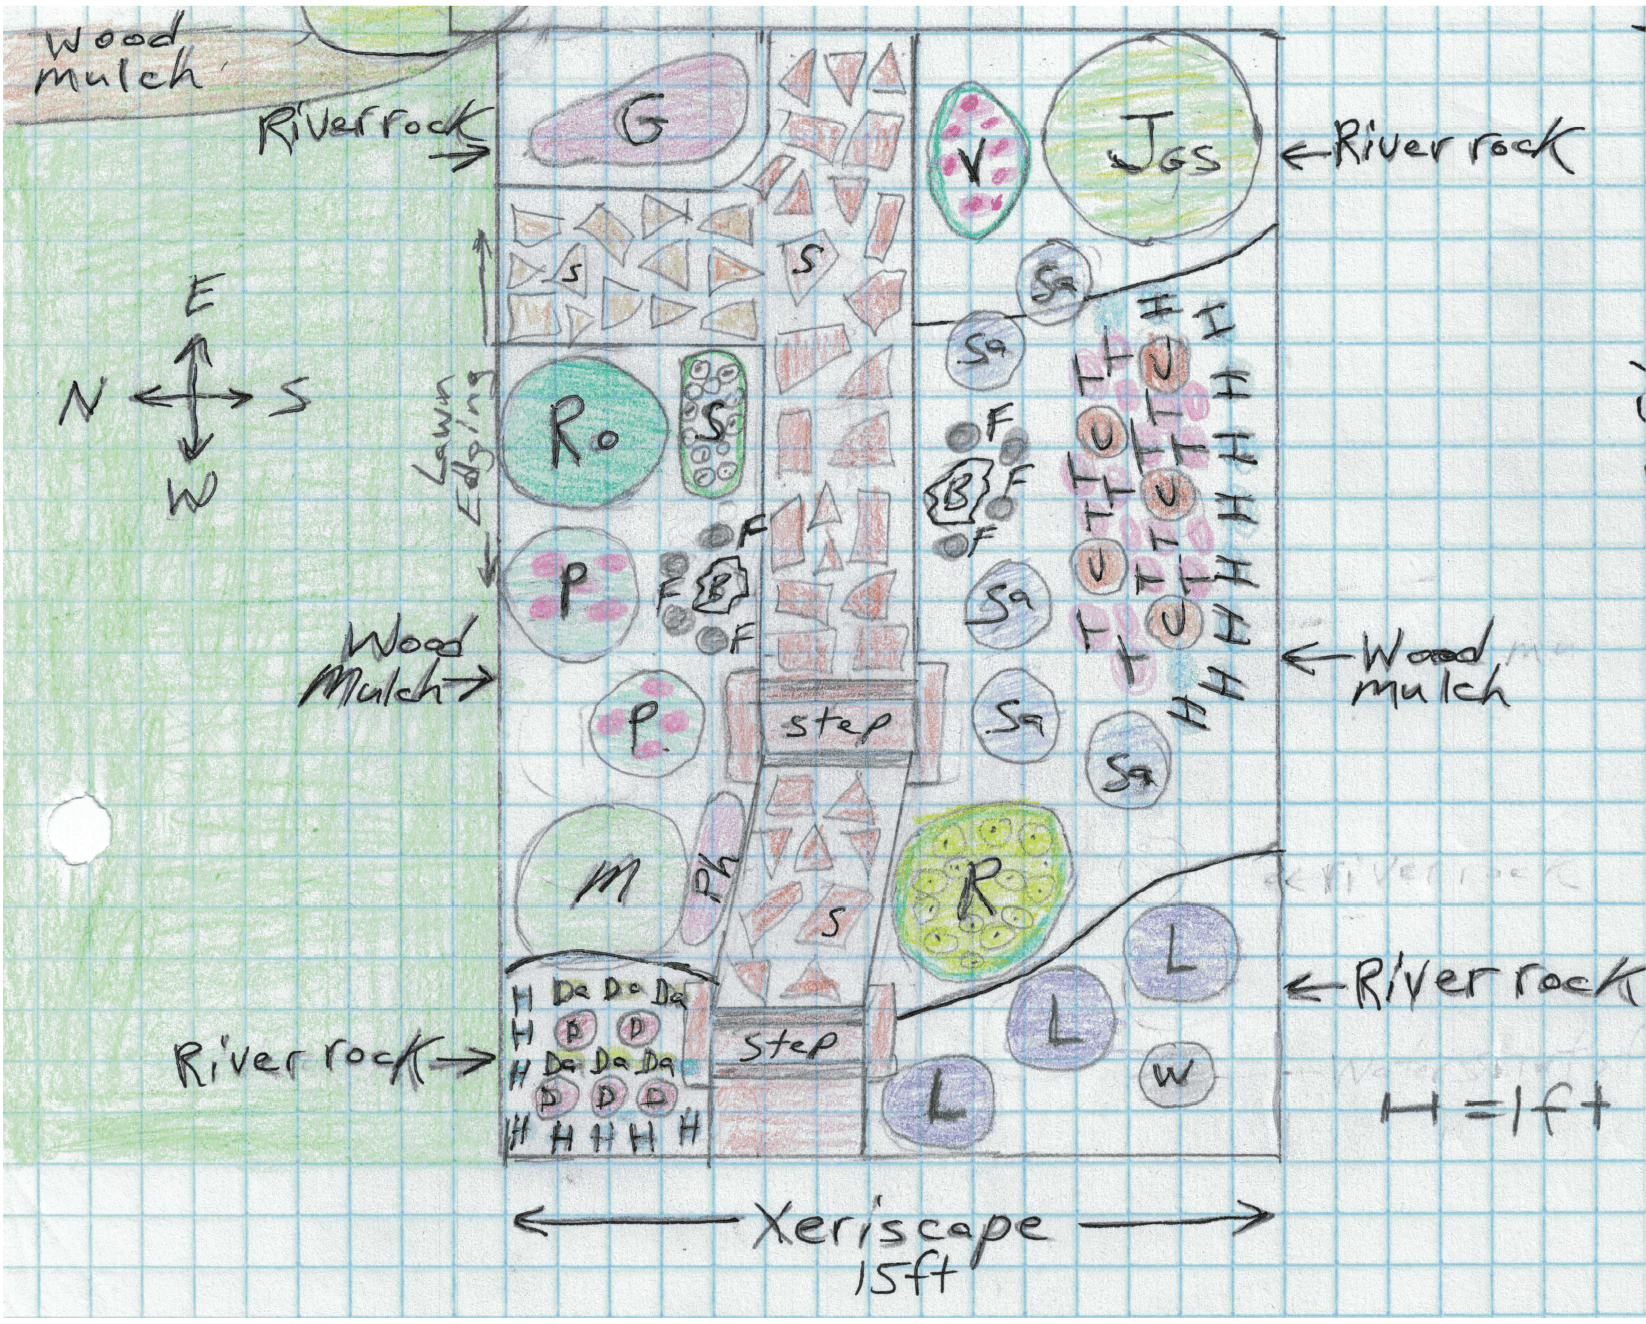 Wood
mulch
River rock
G
V
JGS
River rock
E
N
S
W
S
S
Sa
Sa
H
H
T
T
U
H
Lawn
Edging
Ro
S
F
B
F
F
U
T
T
T
H
T
T
U
H
T
T
H
P
F
B
F
F
Sa
U
T
T
H
T
U
H
T
H
H
Wood
Mulch
P
step
Sa
Sa
Wood
mulch
M
Ph
S
R
river rock
L
L
L
W
River rock
H
Da Da Da
H
D D
H
Da Da Da
D D D
H H H H H
step
River rock
H = 1ft
Xeriscape
15ft